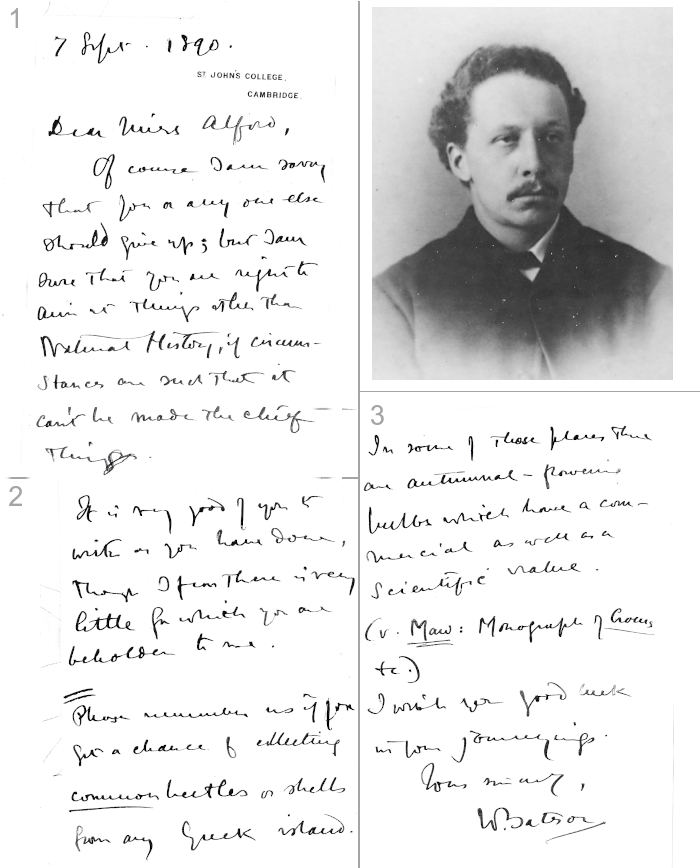 1
7 Sept. 1890.
ST JOHN'S COLLEGE,
CAMBRIDGE.
Dear Miss Alford,
Of course I am sorry
that you or any one else
should give up; but I am
sure that you are right to
aim at things other than
Natural History, if circum-
stances are such that it
can't be made the chief
things.
2
It is very good of you to
write as you have done,
though I fear there is very
little for which you are
beholden to me.
Please remember us if you
get a chance of collecting
common beetles or shells
from any Greek island.
3
In some of those places there
are autumnal-flowering
bulbs which have a com-
mercial as well as a
scientific value.
(v. Maw: Monograph of Crocus
etc.)
I wish you good luck
in your journeyings.
Yours sincerely,
W. Bateson